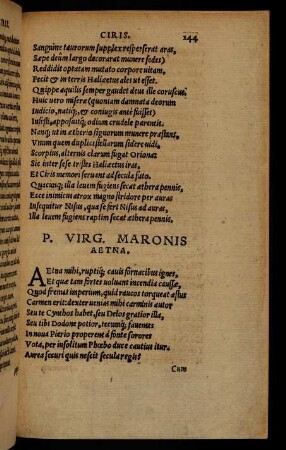 CIRIS. 244
Sanguine taurorum supplex resperserat aras,
Sæpe deûm largo decorarat munere sedes)
Reddidit optatam mutato corpore uitam,
Fecit & in terris Haliæetus ales ut esset.
Quippe aquilis semper gaudet deus ille coruscus.
Huic uero misera (quoniam damnata deorum
Iudicio, natiq́;, & coniugis ante fuisset)
Infesti, apposuitq́; odium crudele parentis.
Nanq́; ut in ætherio signorum munere præstans,
Vnum quem duplici stellarum sidere uidi,
Scorpius, alternis clarum fugat Oriona:
Sic inter sese tristes Haliæetus iras,
Et Ciris memori seruant ad secula fato.
Quacunq́; illa leuem fugiens secat æthera pennis,
Ecce inimicus atrox magno stridore per auras
Insequitur Nisus, qua se fert Nisus ad auras,
Illa leuem fugiens raptim secat æthera pennis.
P. VIRG. MARONIS
AETNA.
AEtna mihi, ruptiq́; cauis fornacibus ignes,
Et quæ tam fortes uoluant incendia caussæ,
Quod fremat imperium, quid raucos torqueat æstus
Carmen erit: dexter uenias mihi carminis autor
Seu te Cynthos habet, seu Delos gratior illa,
Seu tibi Dodone potior, tecumq́; fauentes
In noua Pierio properent à fonte sorores
Vota, per insolitum Phœbo duce cautius itur.
Aurea securi quis nescit secula regis?
Cum